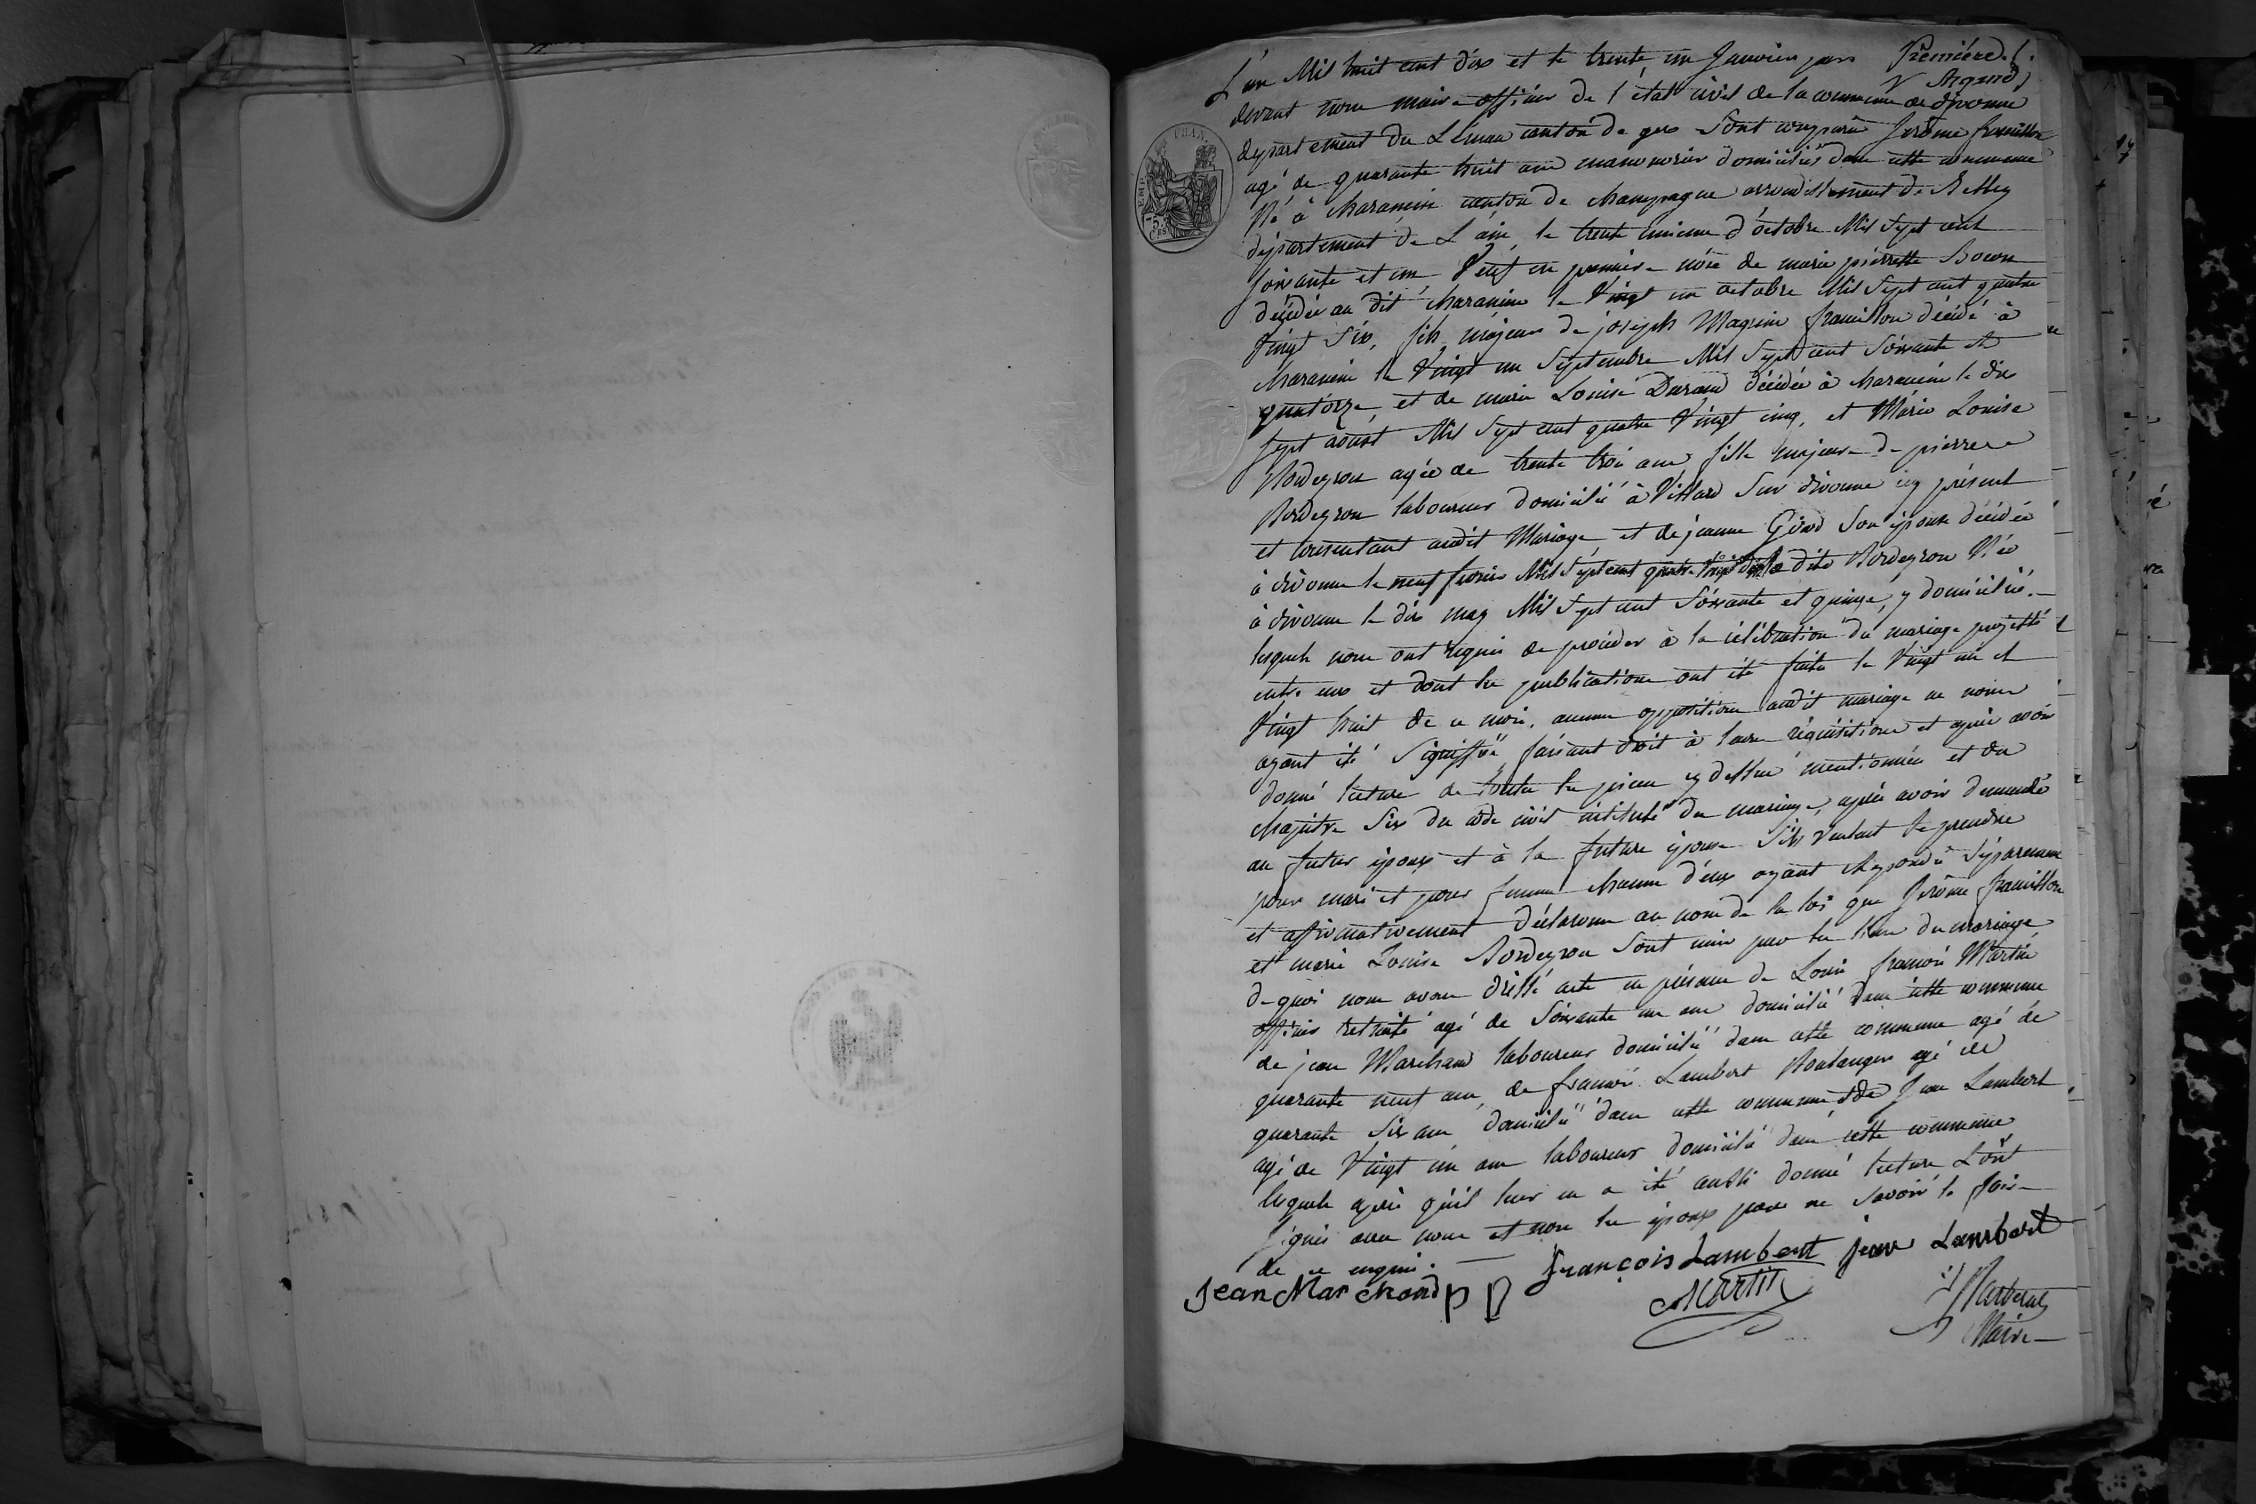 Première
V Argand
L'an Mil huit cent dix et le trente un Janvier par
devant nous maire officier de l'état civil de la commune de divonne
département du Léman canton de gex sont comparu Jerôme framillon
agé de quarante huit ans manouvrier domicilié dans cette commune
Né à charancin canton de champagne arrondissement de Belley
département de L'ain le trente unieme d'octobre Mil Sept cent
soixante et un Veuf en premiere nôce de marie pierrette
décédée au dit charancin le Vingt un octobre Mil Sept cent quatre
Vingt Six, fils majeur de joseph Magnin framillon décédé à
charancin le Vingt un Septembre Mil Sept cent Soixante et
quatorze, et de marie Louise Durand décédée à charancin le dix
sept aoust Mil Sept cent quatre Vingt cinq, et Marie Louise
Bordeyron agée de trente trois ans fille majeure de pierre
Bordeyron laboureur domicilié à Villard sur divonne icy présent
et consentant audit Mariage, et de jeanne Girod Son épouse décédée
à divonne le neuf fevrier Mil Sept cent quatre Vingt dite Bordeyron Née
à divonne le dix may Mil Sept cent Soixante et quinze, y domiciliée.
lesquels nous ont requis de procéder à la célébration du mariage projetté
entre eux et dont les publications ont été faites le Vingt un et
Vingt huit de ce mois, aucune opposition audit mariage ne nous
ayant été Signiffiée, faisant droit à leur réquisition et après avoir
donné lecture de toutes les pieces cy dessus mentionnées et du
chapitre Six du code civil intitulé du mariage, après avoir demandé
au futur époux et à la future épouse S'ils veulent se prendre
pour mari et pour femme chacun d'eux ayant Répondu Séparement
et affirmativement déclarons au nom de la loi que Jerôme framillon
et marie Louise Bordeyron Sont unis par les liens du mariage
de quoi nous avons dréssé acte en présence de Louis françois Martin
officier retraité agé de Soixante un ans domicilié dans cette commune
de jean Marchand laboureur domicilié dans cette commune agé de
quarante neuf ans, de françois Lambert Boulanger agé de
quarante Six ans domicilié dans cette commune et de Jean Lambert
agé de Vingt un ans laboureur domicilié dans cette commune
lesquels après qu'il leur en a été aussi donné lecture L'ont
Signés avec nous et non les époux pour ne Savoir le faire
de ce enquis.
françois Lambert jean Lambert
Jean Marchand
Martin
Maire